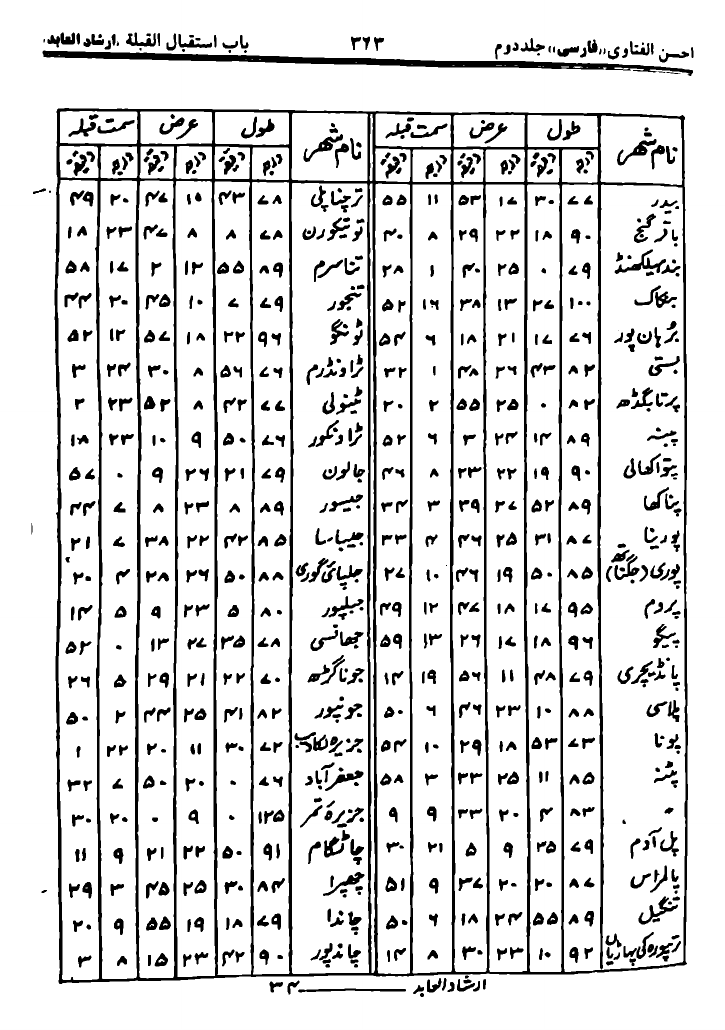 احسن الفتاوی ،،فارسی،، جلد دوم ۳۶۳ باب استقبال القبلة ،ارشاد العابد،
نام شهر طول عرض سمت قبلہ نام شهر طول عرض سمت قبلہ
درجہ دقیقہ درجہ دقیقہ درجہ دقیقہ درجہ دقیقہ درجہ دقیقہ درجہ دقیقہ
بیدر ۷۷ ۳۰ ۱۷ ۵۳ ۱۱ ۵۵ ترچناپلی ۷۸ ۴۳ ۱۰ ۴۷ ۲۰ ۴۹
باقر گنج ۹۰ ۱۸ ۲۲ ۲۹ ۸ ۴۰ توتیکورن ۷۸ ۸ ۸ ۴۷ ۲۳ ۱۸
بندہیلکھنڈ ۷۹ ۰ ۲۵ ۴۰ ۱ ۲۸ تناسرم ۸۹ ۵۵ ۱۲ ۲ ۱۷ ۵۸
بنکاک ۱۰۰ ۲۷ ۱۳ ۳۸ ۱۶ ۵۲ تنجور ۷۹ ۷ ۱۰ ۴۵ ۲۰ ۴۴
بُرہان پور ۷۶ ۱۷ ۲۱ ۱۸ ۶ ۵۴ ٹونگو ۹۶ ۲۲ ۱۸ ۵۷ ۱۲ ۵۲
بستی ۸۲ ۴۳ ۲۶ ۴۸ ۱ ۳۲ ٹراونڈرم ۷۶ ۵۶ ۸ ۳۰ ۲۴ ۳
پرتابگڈھ ۸۲ ۰ ۲۵ ۵۵ ۲ ۲۰ ٹینولی ۷۷ ۴۲ ۸ ۵۲ ۲۳ ۲
پبنہ ۸۹ ۱۴ ۲۴ ۳ ۶ ۵۲ ٹراونکور ۷۶ ۵۰ ۹ ۱۰ ۲۳ ۱۸
پتواکھالی ۹۰ ۱۹ ۲۲ ۲۳ ۸ ۴۶ جالون ۷۹ ۲۱ ۲۶ ۹ ۰ ۵۷
پناکھا ۸۹ ۵۲ ۲۷ ۳۹ ۳ ۳۴ جیسور ۸۹ ۸ ۲۳ ۸ ۷ ۴۴
پورینا ۸۷ ۳۱ ۲۵ ۴۶ ۴ ۳۳ جیباسا ۸۵ ۴۲ ۲۲ ۳۸ ۷ ۲۱
پوری (جگناتھ) ۸۵ ۵۰ ۱۹ ۴۶ ۱۰ ۲۷ جلپائی گوری ۸۸ ۵۰ ۲۶ ۲۸ ۴ ۲۰
پروم ۹۵ ۱۷ ۱۸ ۴۷ ۱۲ ۴۹ جبلپور ۸۰ ۵ ۲۳ ۹ ۵ ۱۴
پیگو ۹۶ ۱۸ ۱۷ ۲۶ ۱۳ ۵۹ جھانسی ۷۸ ۳۵ ۲۷ ۱۳ ۰ ۵۲
پانڈیچری ۷۹ ۴۸ ۱۱ ۵۶ ۱۹ ۱۴ جوناگڑھ ۷۰ ۲۲ ۲۱ ۲۹ ۵ ۲۶
پلاسی ۸۸ ۱۰ ۲۳ ۴۶ ۶ ۵۰ جونپور ۸۲ ۴۱ ۲۵ ۴۴ ۲ ۵۰
پونا ۷۳ ۵۳ ۱۸ ۲۹ ۱۰ ۵۴ جزیرہ لکادیب ۷۲ ۳۰ ۱۱ ۲۰ ۲۲ ۱
پٹنہ ۸۵ ۱۱ ۲۵ ۳۳ ۳ ۵۸ جعفرآباد ۷۶ ۰ ۲۰ ۵۰ ۷ ۳۲
〃 ۸۳ ۴ ۲۰ ۳۳ ۹ ۹ جزیرہ تمر ۱۲۵ ۰ ۹ ۰ ۲۰ ۳۰
پل آدم ۷۹ ۲۵ ۹ ۵ ۲۱ ۳۰ چاٹگام ۹۱ ۵۰ ۲۲ ۲۱ ۹ ۱۱
پالمراس ۸۷ ۲۰ ۲۰ ۳۷ ۹ ۵۱ چھپرا ۸۴ ۳۰ ۲۵ ۴۵ ۳ ۲۹
تنگیل ۸۹ ۵۵ ۲۴ ۱۸ ۶ ۵۰ چاندا ۷۹ ۱۸ ۱۹ ۵۵ ۹ ۲۰
تریپورہ کی پہاڑیاں ۹۲ ۱۰ ۲۳ ۳۰ ۸ ۱۴ چاندپور ۹۰ ۴۲ ۲۳ ۱۵ ۸ ۳
ارشاد العابد ۳۴